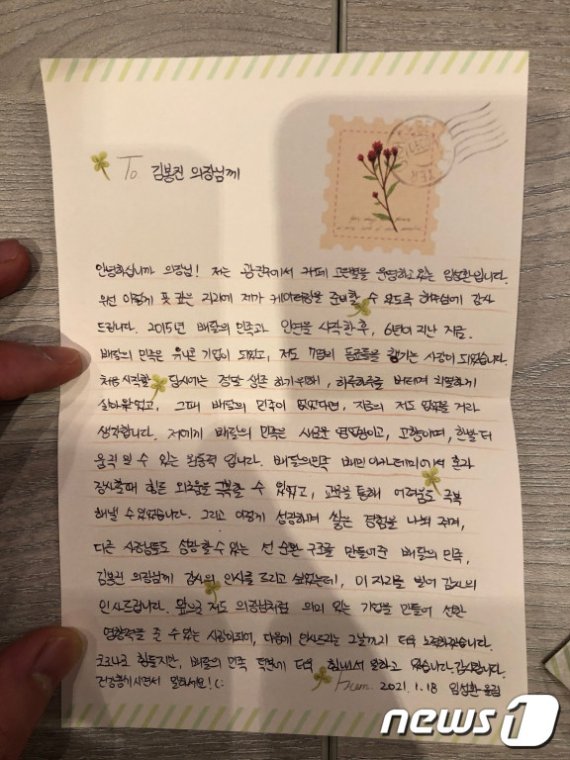 To. 김봉진 의장님께
안녕하십니까 의장님! 저는 광진구에서 카페 고든밸을 운영하고있는 임성환입니다.
우선 이렇게 뜻 깊은 자리에 제가 케이터링을 준비할 수 있도록 해주심에 감사
드립니다. 2015년 배달의 민족과 인연을 시작한 후, 6년이 지난 지금.
배달의 민족은 유니콘 기업이 되었고, 저도 7명의 동료들을 챙기는 사장이 되었습니다.
처음 시작할 당시에는 정말 생존 하기위해, 하루하루를 버티며 치열하게
살아왔었고, 그때 배달의 민족이 없었다면, 지금의 저도 없었을 거라
생각합니다. 저에게 배달의 민족은 새로운 영감이고, 고향이며, 한발 더
움직일 수 있는 원동력 입니다. 배달의민족 배민아카데미에서 혼자
장사할때 힘든 외로움을 극복할 수 있었고, 교육을 통해 어려움도 극복
해낼 수 있었습니다. 그리고 이렇게 성장하며 쌓는 경험을 나눠 주며,
다른 사장님들도 성장할 수 있는 선 순환 구조를 만들어준 배달의 민족,
김봉진 의장님께 감사의 인사를 드리고 싶었는데, 이 자리를 빌어 감사의
인사드립니다. 앞으로 저도 의장님처럼 의미 있는 기업을 만들어 선한
영향력을 줄 수 있는 사람이되어, 다음에 인사드리는 그날까지 더욱 노력하겠습니다.
코로나로 힘들지만, 배달의 민족 덕분에 더욱 힘내서 일하고 있습니다. 감사합니다.
건강챙기시면서 일하세요! (:
from. 2021. 1. 18 임성환 올림
news1